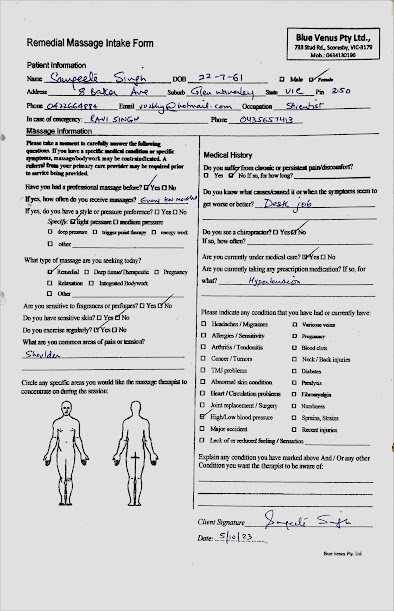 Blue Venus Pty Ltd.,
733 Stud Rd., Scoresby, VIC-3179
Mob.: 0434130196
Remedial Massage Intake Form
Patient Information
Name Sangeeta Singh DOB 22-7-61 □ Male ☑ Female
Address 8 Baker Ave Suburb Glen Waverley State VIC Pin
Phone Email @hotmail.com Occupation Scientist
In case of emergency: RAVI SINGH Phone 0435657413
Massage Information
Please take a moment to carefully answer the following
questions. If you have a specific medical condition or specific
symptoms, massage/bodywork may be contraindicated. A
referral from your primary care provider may be required prior
to service being provided.
Have you had a professional massage before? ☑ Yes □ No
If yes, how often do you receive massages? Every
If yes, do you have a style or pressure preference? □ Yes □ No
Specify: ☑ light pressure □ medium pressure
□ deep pressure □ trigger point therapy □ energy work
□ other
What type of massage are you seeking today?
☑ Remedial □ Deep tissue/Therapeutic □ Pregnancy
□ Relaxation □ Integrated Bodywork
□ Other
Are you sensitive to fragrances or perfumes? □ Yes ☑ No
Do you have sensitive skin? □ Yes ☑ No
Do you exercise regularly? ☑ Yes □ No
What are you common areas of pain or tension?
Shoulder
Circle any specific areas you would like the massage therapist to
concentrate on during the session:
Medical History
Do you suffer from chronic or persistent pain/discomfort?
□ Yes ☑ No If so, for how long?
Do you know what causes/caused it or when the symptoms seem to
get worse or better? Desk job
Do you see a chiropractor? □ Yes ☑ No
If so, how often?
Are you currently under medical care? ☑ Yes □ No
Are you currently taking any prescription medication? If so, for
what? Hypertension
Please indicate any condition that you have had or currently have:
□ Headaches / Migraines □ Varicose veins
□ Allergies / Sensitivity □ Pregnancy
□ Arthritis / Tendonitis □ Blood clots
□ Cancer / Tumors □ Neck / Back injuries
□ TMJ problems □ Diabetes
□ Abnormal skin condition □ Paralysis
□ Heart / Circulation problems □ Fibromyalgia
□ Joint replacement / Surgery □ Numbness
☑ High/Low blood pressure □ Sprains, Strains
□ Major accident □ Recent injuries
□ Lack of or reduced feeling / Sensation
Explain any condition you have marked above And / Or any other
Condition you want the therapist to be aware of:
Client Signature Sangeeta Singh
Date: 5/10/23
Blue Venus Pty. Ltd.